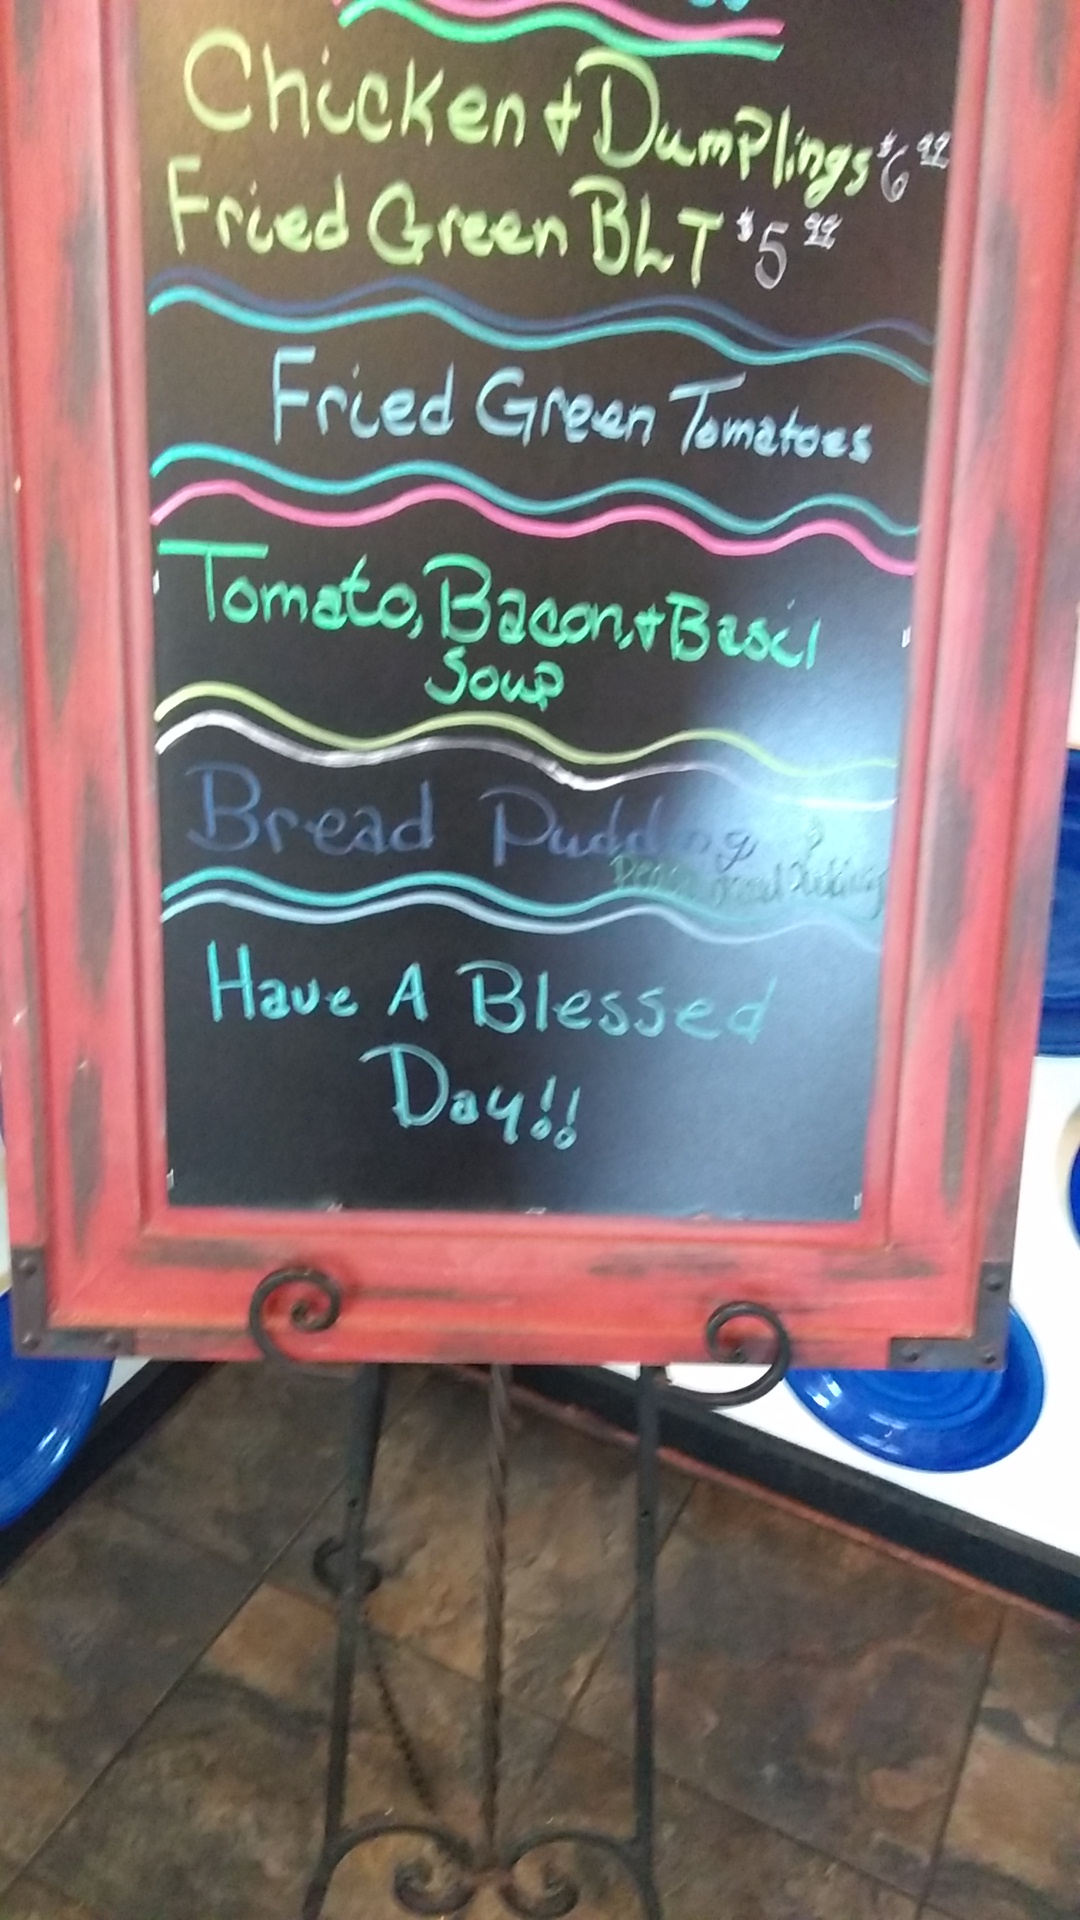 Chicken + Dumplings $6.99
Fried Green BLT $5.99
Fried Green Tomatoes
Tomato, Bacon, + Basil
Soup
Bread Pudding
Have A Blessed
Day!!